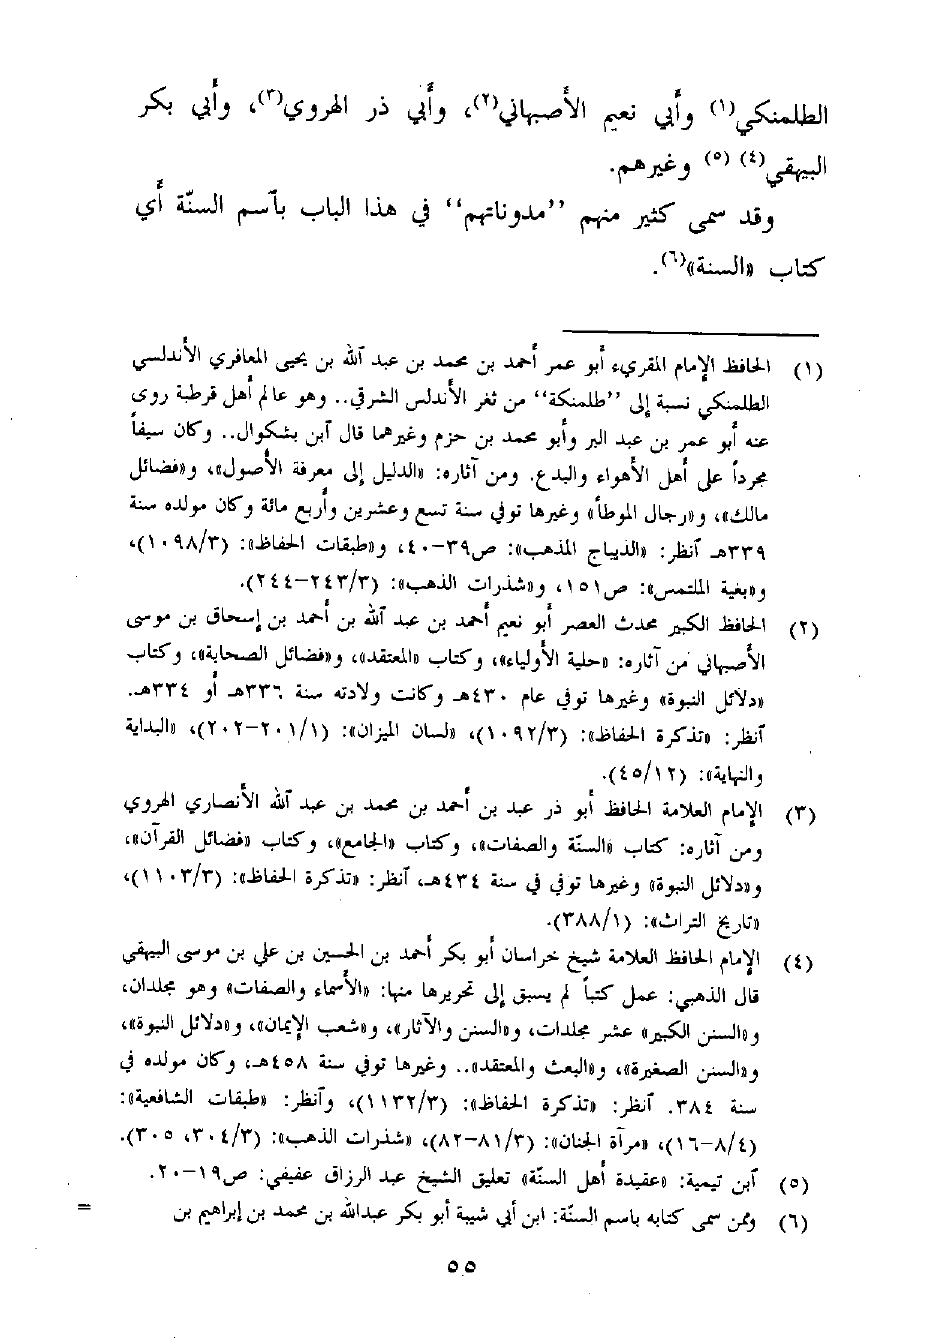 الطلمنكي(١) وأبي نعيم الأصبهاني(٢)، وأبي ذر الهروي(٣)، وأبي بكر
البيهقي(٤) (٥) وغيرهم.
وقد سمى كثير منهم ”مدوناتهم“ في هذا الباب بآسم السنّة أي
كتاب «السنة»(٦).
(١) الحافظ الإمام المقريء أبو عمر أحمد بن محمد بن عبد آلله بن يحيى المعافري الأندلسي
الطلمنكي نسبة إلى ”طلمنكة“ من ثغر الأندلس الشرقي.. وهو عالم أهل قرطبة روى
عنه أبو عمر بن عبد البر وأبو محمد بن حزم وغيرهما قال آبن بشكوال.. وكان سيفاً
مجرداً على أهل الأهواء والبدع. ومن آثاره: «الدليل إلى معرفة الأصول»، و«فضائل
مالك»، و«رجال الموطأ» وغيرها توفي سنة تسع وعشرين وأربع مائة وكان مولده سنة
٣٣٩هـ آنظر: «الديباج المذهب»: ص٣٩-٤٠، و«طبقات الحفاظ»: (١٠٩٨/٣)،
و«بغية الملتمس»: ص١٥١، و«شذرات الذهب»: (٢٤٣/٣-٢٤٤).
(٢) الحافظ الكبير محدث العصر أبو نعيم أحمد بن عبد آلله بن أحمد بن إسحاق بن موسى
الأصبهاني من آثاره: «حلية الأولياء»، وكتاب «المعتقد»، و«فضائل الصحابة»، وكتاب
«دلائل النبوة» وغيرها توفي عام ٤٣٠هـ وكانت ولادته سنة ٣٣٦هـ أو ٣٣٤هـ.
آنظر: «تذكرة الحفاظ»: (١٠٩٢/٣)، «لسان الميزان»: (٢٠١/١-٢٠٢)، «البداية
والنهاية»: (٤٥/١٢).
(٣) الإمام العلامة الحافظ أبو ذر عبد بن أحمد بن محمد بن عبد آلله الأنصاري الهروي
ومن آثاره: كتاب «السنّة والصفات»، وكتاب «الجامع»، وكتاب «فضائل القرآن»،
و«دلائل النبوة» وغيرها توفي في سنة ٤٣٤هـ، آنظر: «تذكرة الحفاظ»: (١١٠٣/٣)،
«تاريخ التراث»: (٣٨٨/١).
(٤) الإمام الحافظ العلامة شيخ خراسان أبو بكر أحمد بن الحسين بن علي بن موسى البيهقي
قال الذهبي: عمل كتباً لم يسبق إلى تحريرها منها: «الأسماء والصفات» وهو مجلدان،
و«السنن الكبير» عشر مجلدات، و«السنن والآثار»، و«شعب الإيمان»، و«دلائل النبوة»،
و«السنن الصغيرة»، و«البعث والمعتقد».. وغيرها توفي سنة ٤٥٨هـ، وكان مولده في
سنة ٣٨٤. آنظر: «تذكرة الحفاظ»: (١١٣٢/٣)، وآنظر: «طبقات الشافعية»:
(٨/٤-١٦)، «مرآة الجنان»: (٨١/٣-٨٢)، «شذرات الذهب»: (٣٠٤/٣، ٣٠٥).
(٥) آبن تيمية: «عقيدة أهل السنّة» تعليق الشيخ عبد الرزاق عفيفي: ص١٩-٢٠.
(٦) وممن سمى كتابه باسم السنّة: ابن أبي شيبة أبو بكر عبدالله بن محمد بن إبراهيم بن =
٥٥